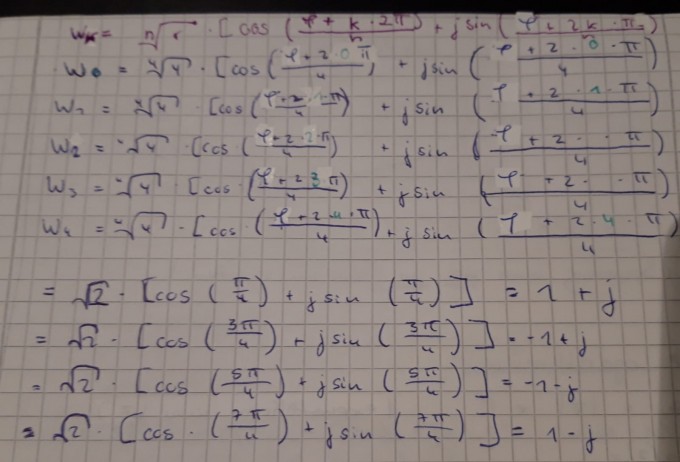 wₖ = ⁿ√r · [cos (φ + k · 2π / n) + j sin (φ + 2k · π / n)
w₀ = ⁴√4 · [cos (φ + 2 · 0 π / 4) + j sin (φ + 2 · 0 · π / 4)
w₁ = ⁴√4 · [cos (φ + 2 · 1 · π / 4) + j sin (φ + 2 · 1 · π / 4)
w₂ = ⁴√4 · [cos (φ + 2 2 · π / 4) + j sin (φ + 2 · · π / 4)
w₃ = ⁴√4 · [cos (φ + 2 3 · π / 4) + j sin (φ + 2 · · π / 4)
w₄ = ⁴√4 · [cos (φ + 2 4 · π / 4) + j sin (φ + 2 · 4 · π / 4)
= √2 · [cos (π/4) + j sin (π/4)] = 1 + j
= √2 · [cos (3π/4) + j sin (3π/4)] = -1 + j
= √2 · [cos (5π/4) + j sin (5π/4)] = -1 - j
= √2 · [cos · (7π/4) + j sin (7π/4)] = 1 - j